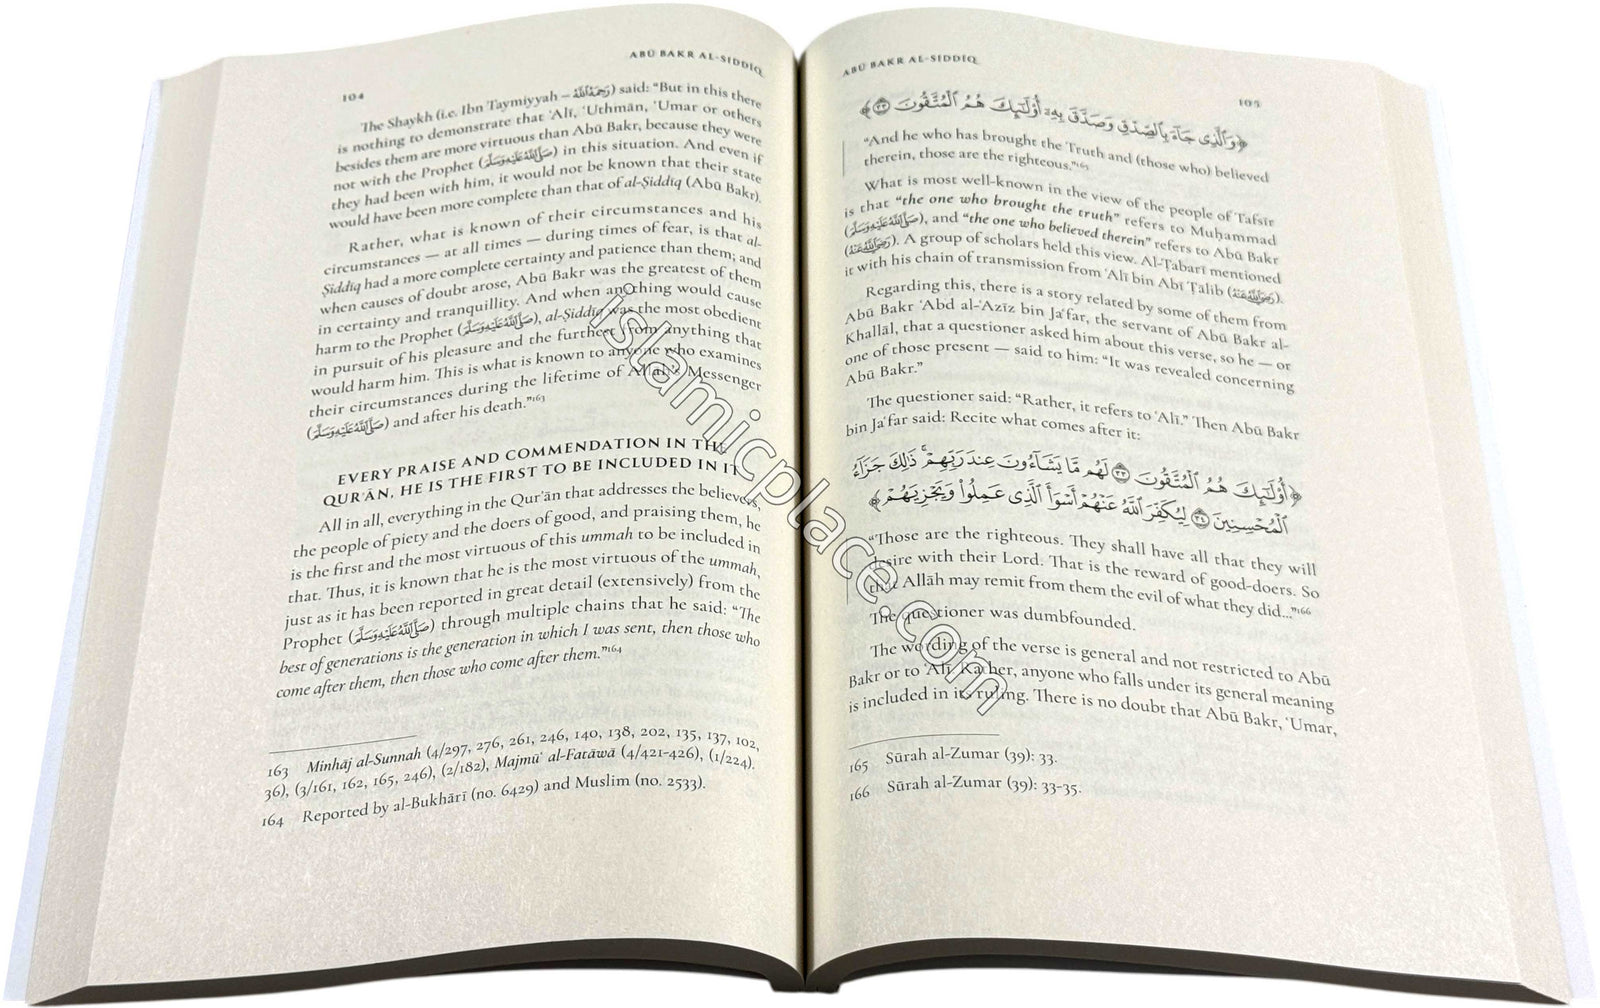 ABŪ BAKR AL-SIDDĪQ
104
The Shaykh (i.e. Ibn Taymiyyah – رَحِمَهُ ٱللَّهُ) said: “But in this there
is nothing to demonstrate that ʿAlī, ʿUthmān, ʿUmar or others
besides them are more virtuous than Abū Bakr, because they were
not with the Prophet (صَلَّى ٱللَّهُ عَلَيْهِ وَسَلَّمَ) in this situation. And even if
they had been with him, it would not be known that their state
would have been more complete than that of al-Ṣiddīq (Abū Bakr).
Rather, what is known of their circumstances and his
circumstances — at all times — during times of fear, is that al-
Ṣiddīq had a more complete certainty and patience than them; and
when causes of doubt arose, Abū Bakr was the greatest of them
in certainty and tranquillity. And when anything would cause
harm to the Prophet (صَلَّى ٱللَّهُ عَلَيْهِ وَسَلَّمَ), al-Ṣiddīq was the most obedient
in pursuit of his pleasure and the furthest from anything that
would harm him. This is what is known to anyone who examines
their circumstances during the lifetime of Allāh’s Messenger
(صَلَّى ٱللَّهُ عَلَيْهِ وَسَلَّمَ) and after his death.”163
EVERY PRAISE AND COMMENDATION IN THE
QURʾĀN, HE IS THE FIRST TO BE INCLUDED IN IT
All in all, everything in the Qurʾān that addresses the believers,
the people of piety and the doers of good, and praising them, he
is the first and the most virtuous of this ummah to be included in
that. Thus, it is known that he is the most virtuous of the ummah,
just as it has been reported in great detail (extensively) from the
Prophet (صَلَّى ٱللَّهُ عَلَيْهِ وَسَلَّمَ) through multiple chains that he said: “The
best of generations is the generation in which I was sent, then those who
come after them, then those who come after them.”164
163 Minhāj al-Sunnah (4/297, 276, 261, 246, 140, 138, 202, 135, 137, 102,
36), (3/161, 162, 165, 246), (2/182), Majmūʿ al-Fatāwā (4/421-426), (1/224).
164 Reported by al-Bukhārī (no. 6429) and Muslim (no. 2533).
ABŪ BAKR AL-SIDDĪQ
105
﴿وَٱلَّذِى جَآءَ بِٱلصِّدْقِ وَصَدَّقَ بِهِۦٓ أُو۟لَـٰٓئِكَ هُمُ ٱلْمُتَّقُونَ ٣٣﴾
“And he who has brought the Truth and (those who) believed
therein, those are the righteous.”165
What is most well-known in the view of the people of Tafsīr
is that “the one who brought the truth” refers to Muḥammad
(صَلَّى ٱللَّهُ عَلَيْهِ وَسَلَّمَ), and “the one who believed therein” refers to Abū Bakr
(رَضِيَ ٱللَّهُ عَنْهُ). A group of scholars held this view. Al-Ṭabarī mentioned
it with his chain of transmission from ʿAlī bin Abī Ṭālib (رَضِيَ ٱللَّهُ عَنْهُ).
Regarding this, there is a story related by some of them from
Abū Bakr ʿAbd al-ʿAzīz bin Jaʿfar, the servant of Abū Bakr al-
Khallāl, that a questioner asked him about this verse, so he — or
one of those present — said to him: “It was revealed concerning
Abū Bakr.”
The questioner said: “Rather, it refers to ʿAlī.” Then Abū Bakr
bin Jaʿfar said: Recite what comes after it:
﴿أُو۟لَـٰٓئِكَ هُمُ ٱلْمُتَّقُونَ ٣٣ لَهُم مَّا يَشَآءُونَ عِندَ رَبِّهِمْ ۚ ذَٰلِكَ جَزَآءُ
ٱلْمُحْسِنِينَ ٣٤ لِيُكَفِّرَ ٱللَّهُ عَنْهُمْ أَسْوَأَ ٱلَّذِى عَمِلُوا۟ وَيَجْزِيَهُمْ﴾
“Those are the righteous. They shall have all that they will
desire with their Lord. That is the reward of good-doers. So
that Allāh may remit from them the evil of what they did...”166
The questioner was dumbfounded.
The wording of the verse is general and not restricted to Abū
Bakr or to ʿAlī. Rather, anyone who falls under its general meaning
is included in its ruling. There is no doubt that Abū Bakr, ʿUmar,
165 Sūrah al-Zumar (39): 33.
166 Sūrah al-Zumar (39): 33-35.
islamicplace.com